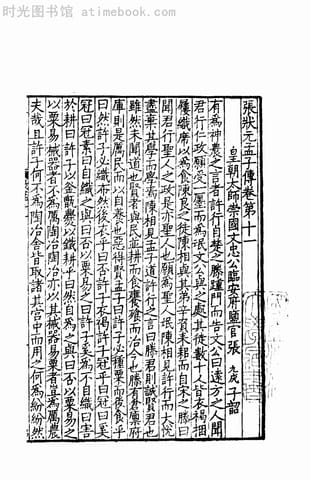 时光图书馆 atimebook.com
張狀元孟子傳卷第十一
皇朝太師崇國文忠公臨安府鹽官張 九成 子韶
有為神農之言者許行自楚之滕踵門而告文公曰遠方之人聞
君行仁政願受一廛而為氓文公與之處其徒數十人皆衣褐捆
屨織席以為食陳良之徒陳相與其弟辛負耒耜而自宋之滕曰
聞君行聖人之政是亦聖人也願為聖人氓陳相見許行而大悅
盡棄其學而學焉陳相見孟子道許行之言曰滕君則誠賢君也
雖然未聞道也賢者與民並耕而食饔飧而治今也滕有倉廩府
庫則是厲民而以自養也惡得賢孟子曰許子必種粟而後食乎
曰然許子必織布然後衣乎曰否許子衣褐許子冠乎曰冠曰奚
冠曰冠素曰自織之與曰否以粟易之曰許子奚為不自織曰害
於耕曰許子以釜甑爨以鐵耕乎曰然自為之與曰否以粟易之
以粟易械器者不為厲陶冶陶冶亦以其械器易粟者豈為厲農
夫哉且許子何不為陶冶舍皆取諸其宮中而用之何為紛紛然